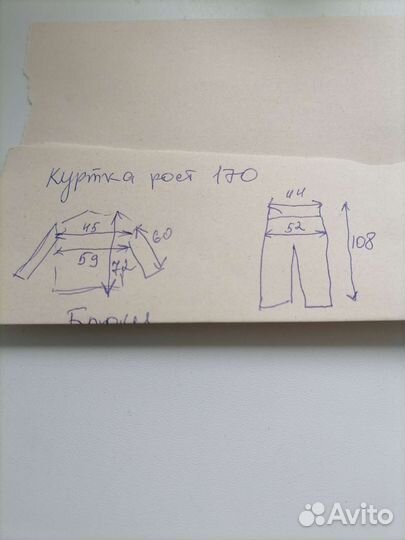 Куртка рост 170
44
45
60
52
59
72
108
Avito